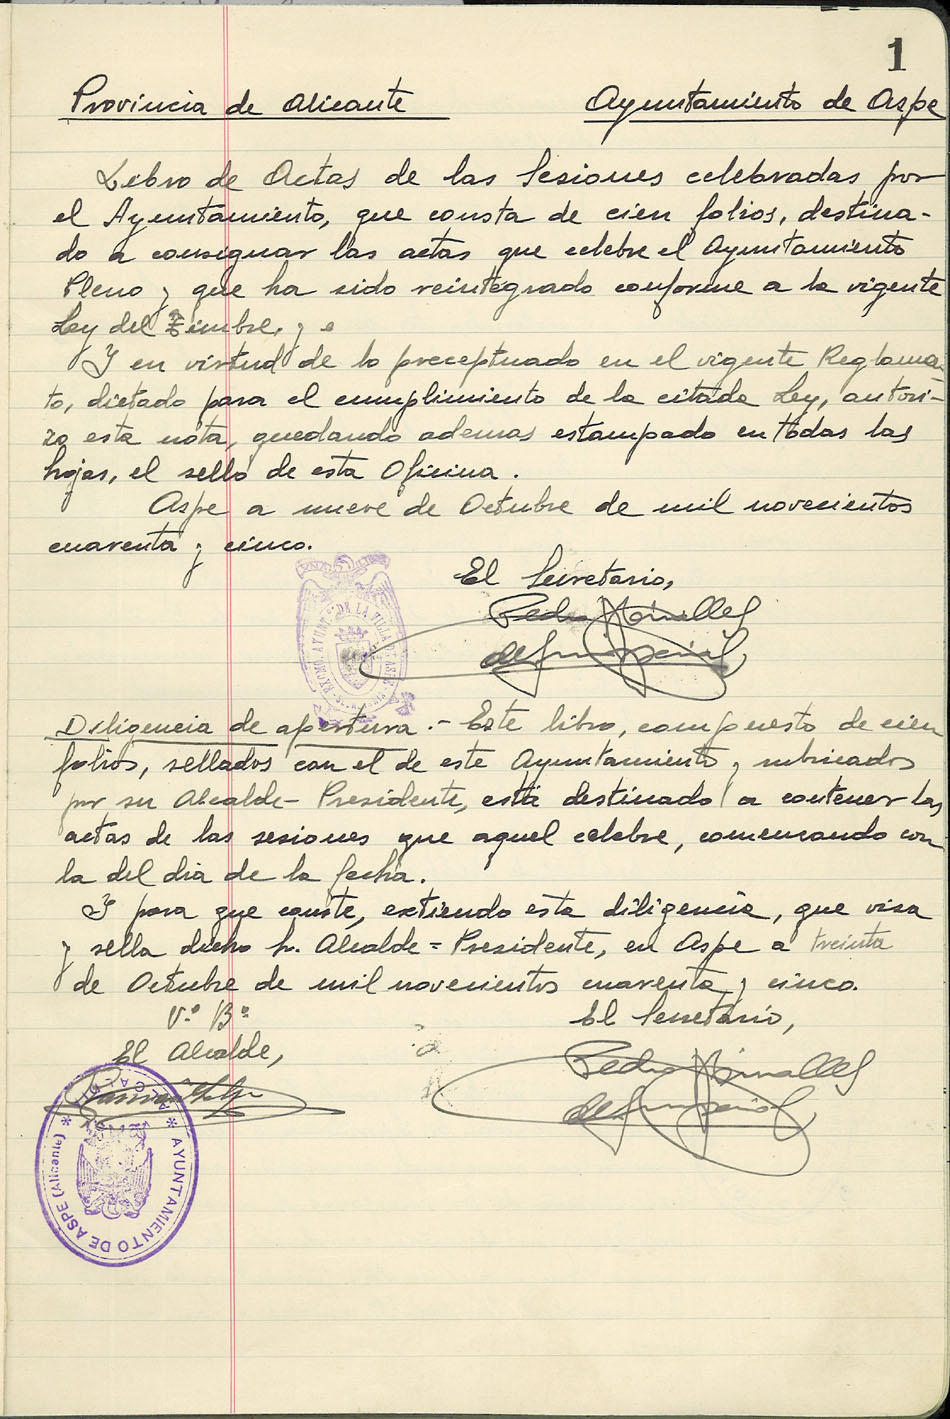 1
Provincia de Alicante Ayuntamiento de Aspe
Libro de Actas de las Sesiones celebradas por
el Ayuntamiento, que consta de cien folios, destina-
do a consignar las actas que celebre el Ayuntamiento
Pleno y que ha sido reintegrado conforme a la vigente
Ley del Timbre, y e
Y en virtud de lo preceptuado en el vigente Reglamen-
to, dictado para el cumplimiento de la citada Ley, autori-
zo esta nota, quedando ademas estampado en todas las
hojas, el sello de esta Oficina.
Aspe a nueve de Octubre de mil novecientos
cuarenta y cinco.
El Secretario,
Pedro
EXCMO. AYUNT. DE LA VILLA DE ASPE
Diligencia de apertura.- Este libro, compuesto de cien
folios, sellados con el de este Ayuntamiento y rubricados
por su Alcalde-Presidente, está destinado a contener las
actas de las sesiones que aquel celebre, comenzando con
la del dia de la fecha.
Y para que conste, extiendo esta diligencia, que visa
y sella dicho Sr. Alcalde=Presidente, en Aspe a treinta
de Octubre de mil novecientos cuarenta y cinco.
V.º Bº
El Alcalde,
El Secretario,
Pedro
AYUNTAMIENTO DE ASPE (Alicante) * ALCALDIA *